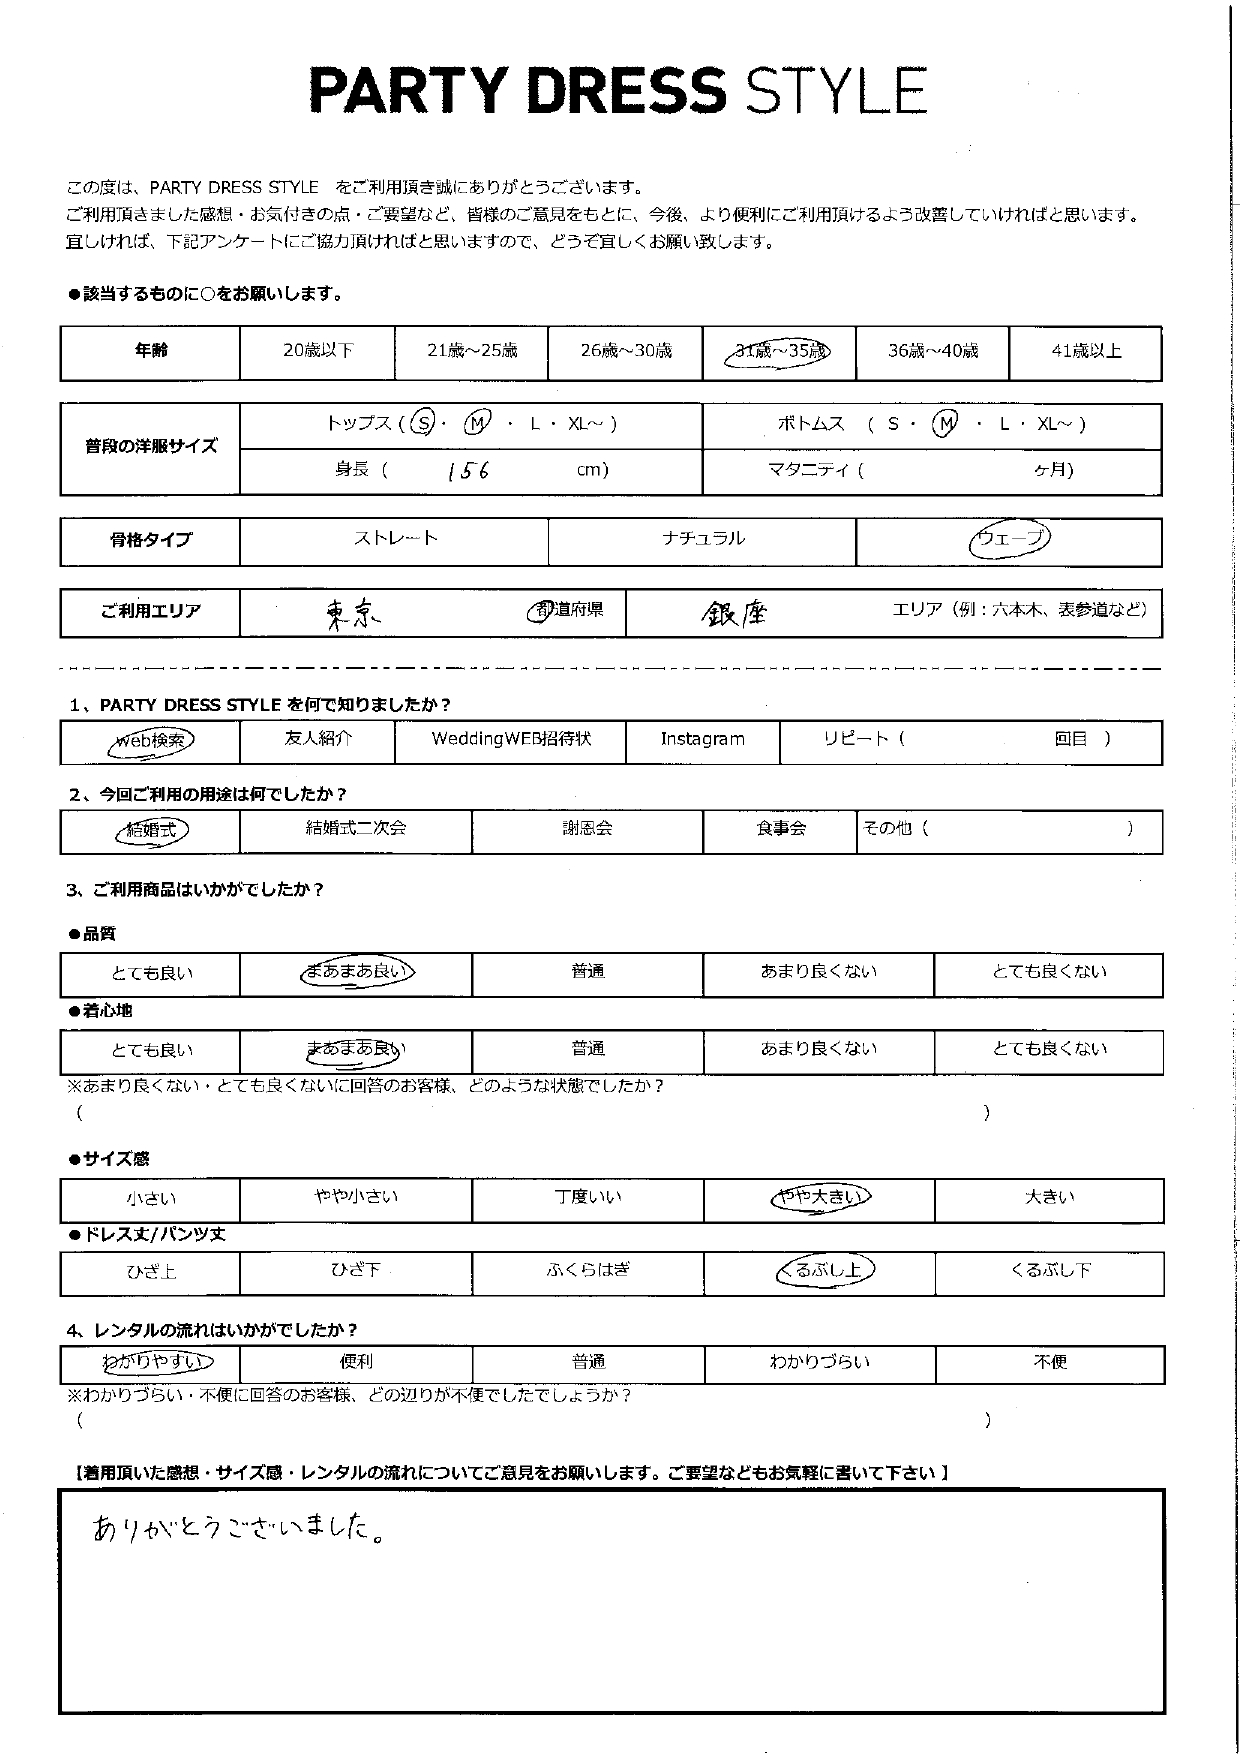 PARTY DRESS STYLE
この度は、PARTY DRESS STYLE をご利用頂き誠にありがとうございます。
ご利用頂きました感想・お気付きの点・ご要望など、皆様のご意見をもとに、今後、より便利にご利用頂けるよう改善していければと思います。
宜しければ、下記アンケートにご協力頂ければと思いますので、どうぞ宜しくお願い致します。
●該当するものに○をお願いします。
年齢 20歳以下 21歳～25歳 26歳～30歳 31歳～35歳 36歳～40歳 41歳以上
普段の洋服サイズ
トップス ( S ・ M ・ L ・ XL～ ) ボトムス ( S ・ M ・ L ・ XL～ )
身長 ( 156 cm) マタニティ ( ヶ月)
骨格タイプ ストレート ナチュラル ウェーブ
ご利用エリア 東京 都道府県 銀座 エリア（例：六本木、表参道など）
1、PARTY DRESS STYLE を何で知りましたか？
Web検索 友人紹介 WeddingWEB招待状 Instagram リピート ( 回目 )
2、今回ご利用の用途は何でしたか？
結婚式 結婚式二次会 謝恩会 食事会 その他 ( )
3、ご利用商品はいかがでしたか？
●品質
とても良い まあまあ良い 普通 あまり良くない とても良くない
●着心地
とても良い まあまあ良い 普通 あまり良くない とても良くない
※あまり良くない・とても良くないに回答のお客様、どのような状態でしたか？
( )
●サイズ感
小さい やや小さい 丁度いい やや大きい 大きい
●ドレス丈/パンツ丈
ひざ上 ひざ下 ふくらはぎ くるぶし上 くるぶし下
4、レンタルの流れはいかがでしたか？
わかりやすい 便利 普通 わかりづらい 不便
※わかりづらい・不便に回答のお客様、どの辺りが不便でしたでしょうか？
( )
【着用頂いた感想・サイズ感・レンタルの流れについてご意見をお願いします。ご要望などもお気軽に書いて下さい 】
ありがとうございました。